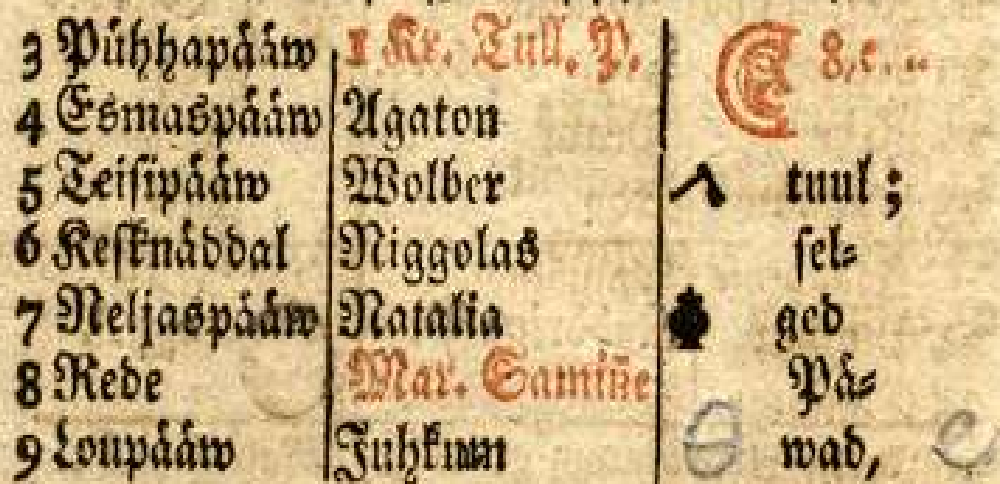 3 Pühhapääw 1 Kr. Tull. P. 8, e.
4 Esmaspääw Agaton
5 Teisipääw Wolber tuul;
6 Kesknäddal Niggolas sel-
7 Neljaspääw Natalia ged
8 Rede Mar. Samiñe Pä-
9 Loupääw Juhkum wad,